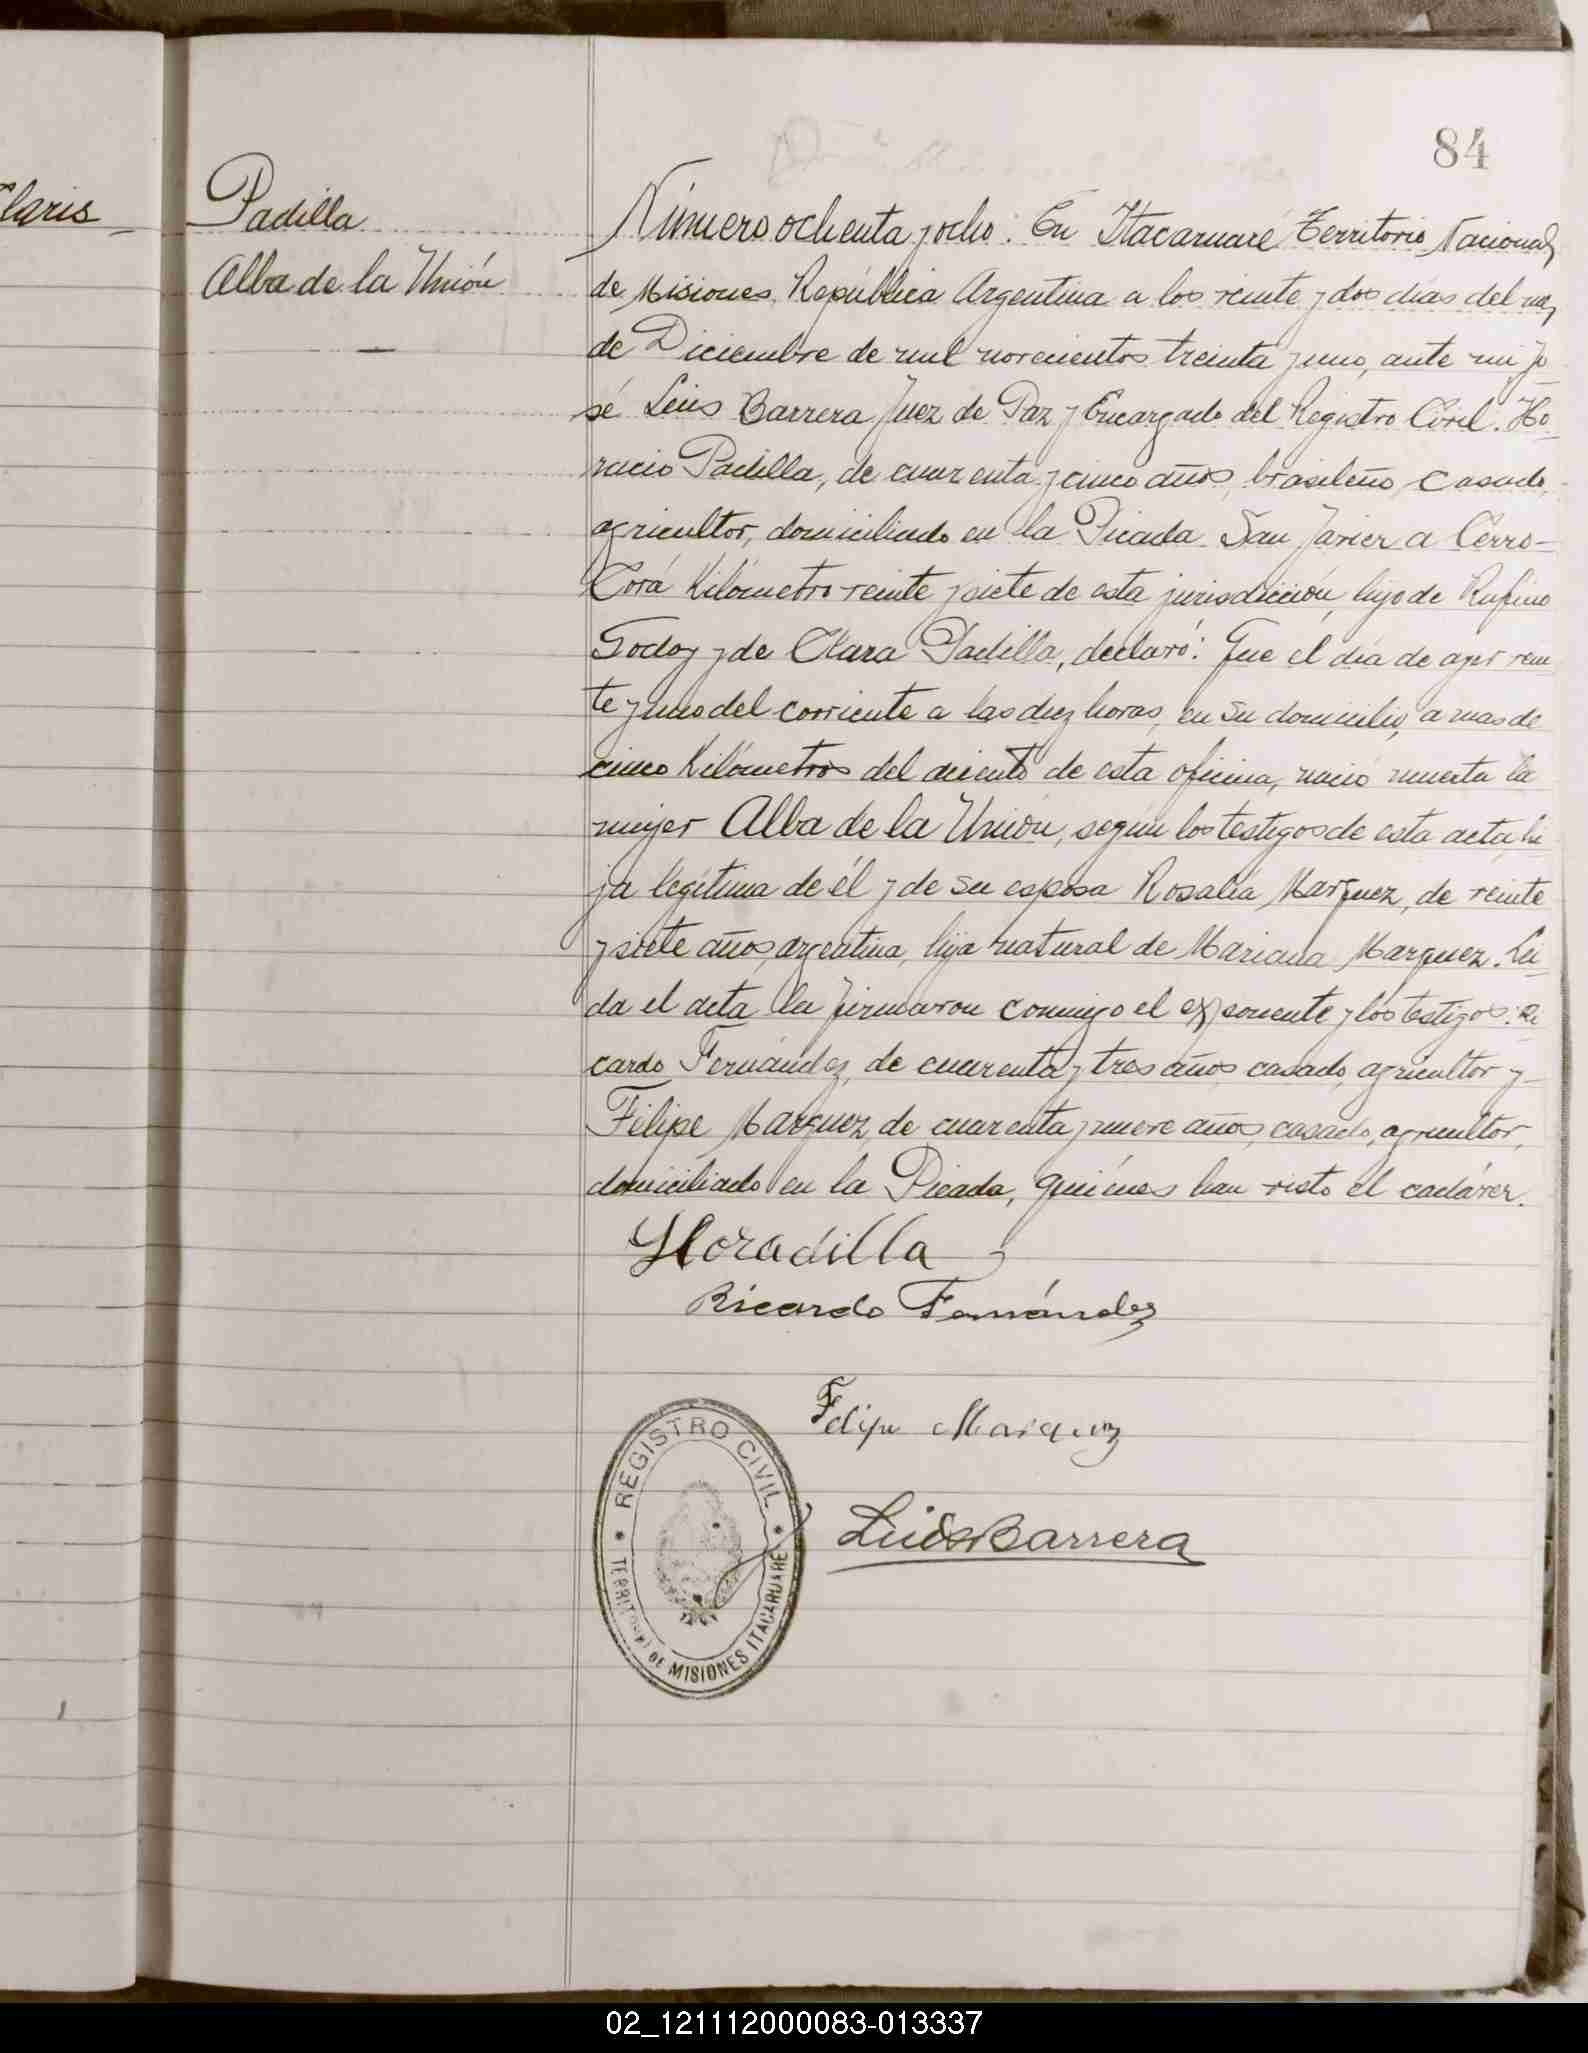 84
Claris
Padilla
Alba de la Unión
Número ochenta y ocho: En Itacaruaré Territorio Nacional
de Misiones, República Argentina a los veinte y dos días del mes
de Diciembre de mil novecientos treinta y uno, ante mi Jo
sé Luis Barrera Juez de Paz y Encargado del Registro Civil. Ho-
racio Padilla, de cuarenta y cinco años, brasileño, casado,
agricultor, domiciliado en la Picada San Javier a Cerro-
Corá Kilómetro veinte y siete de esta jurisdicción, hijo de Rufino
Godoy y de Clara Padilla, declaró: Que el día de ayer vein
te y uno del corriente a las diez horas, en su domicilio, a mas de
cinco Kilómetros del asiento de esta oficina, nació muerta la
mujer Alba de la Unión, según los testigos de esta acta, hi
ja legítima de él y de su esposa Rosalía Marquez, de veinte
y siete años, argentina, hija natural de Mariana Marquez. Lei-
da el acta la firmaron conmigo el exponente y los testigos: Ri
cardo Fernández, de cuarenta y tres años, casado, agricultor y
Felipe Marquez, de cuarenta y nueve años, casado, agricultor,
domiciliado en la Picada, quiénes han visto el cadáver.
Horadilla
Ricardo Fernández
Felipe Marquez
Luis Barrera
REGISTRO CIVIL
TERRITORIO DE MISIONES ITACARUARE
02_121112000083-013337